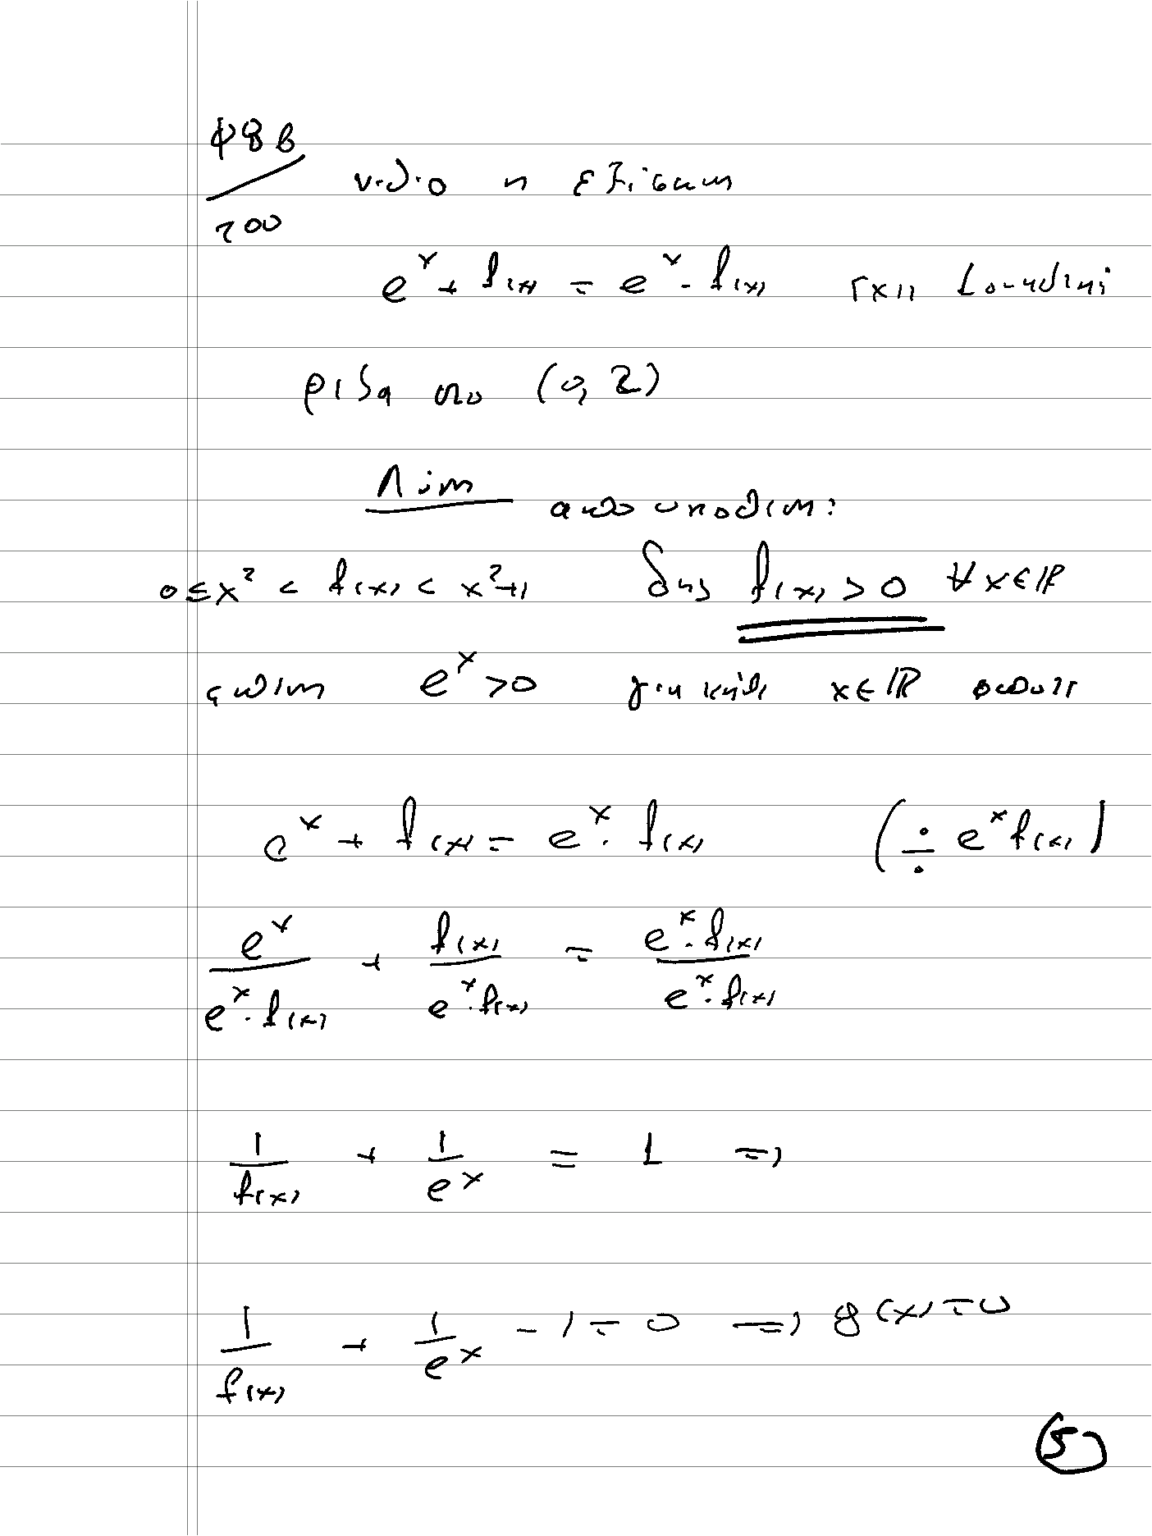 48 β
200
ν.δ.ο η εξίσωση
e^x + f(x) = e^x · f(x) έχει τουλάχιστον
ρίζα στο (0, 2)
Λύση
από υπόθεση:
0 ≤ x² < f(x) < x²+1 δηλ f(x) > 0 ∀ x ∈ ℝ
επίσης e^x > 0 για κάθε x ∈ ℝ
e^x + f(x) = e^x · f(x) (÷ e^x f(x))
e^x / (e^x · f(x)) + f(x) / (e^x · f(x)) = (e^x · f(x)) / (e^x · f(x))
1/f(x) + 1/e^x = 1 ⇒
1/f(x) + 1/e^x - 1 = 0 ⇒ g(x) = 0
5